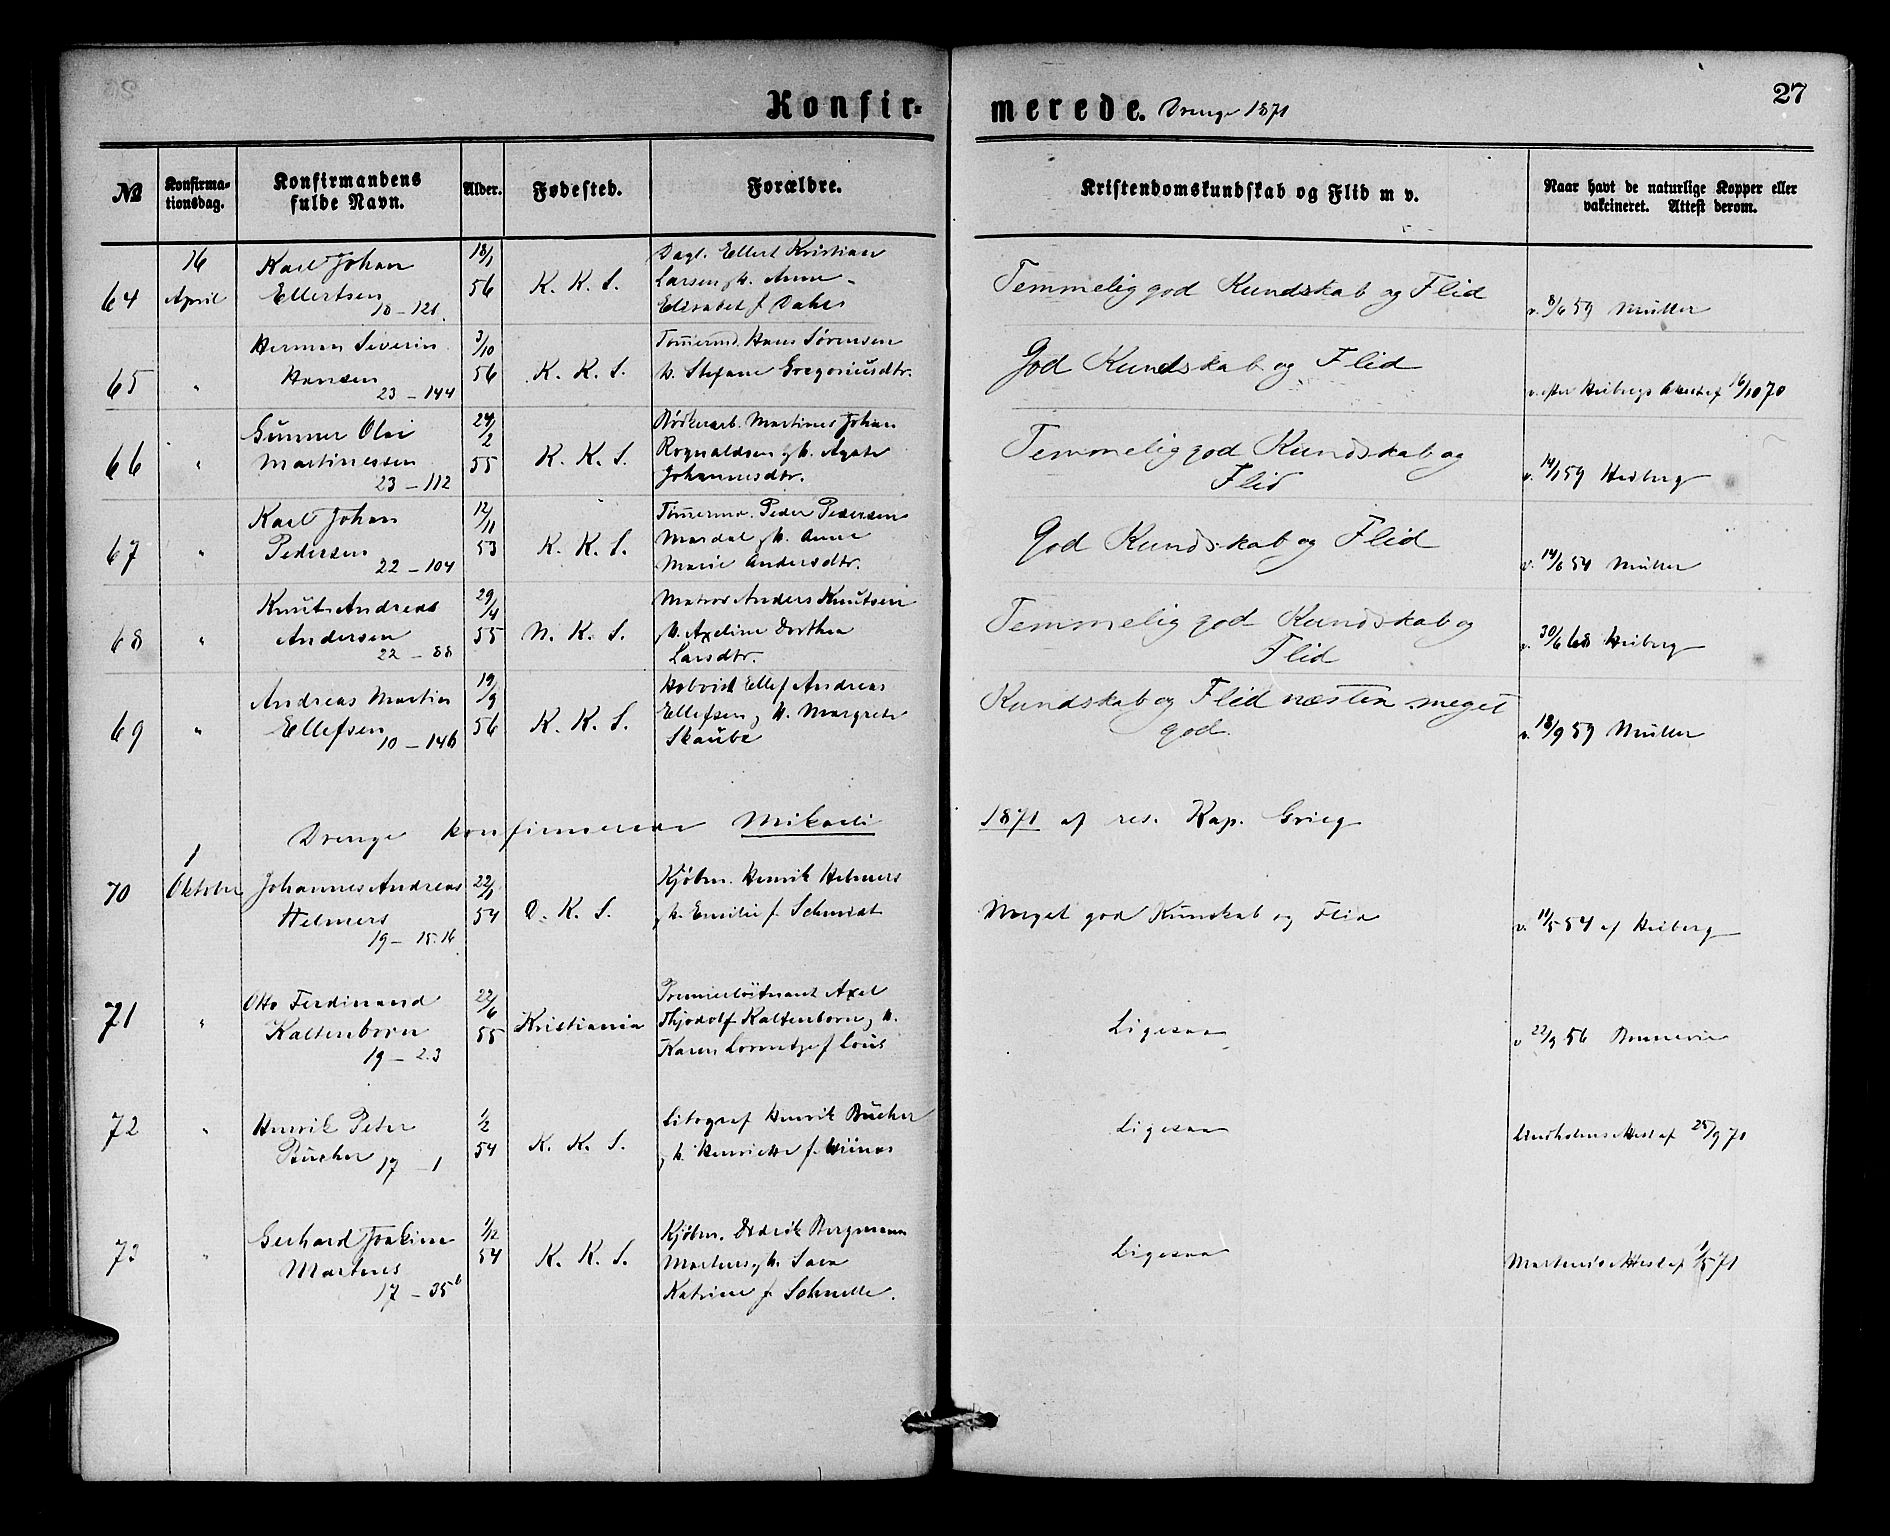 Konfirmerede. Drenge 1871
27
№ Konfirmationsdag. Konfirmandens fulde Navn. Alder. Fødested. Forældre. Kristendomskundskab og Flid m v. Naar havt de naturlige Kopper eller vakcineret. Attest derom.
64 16 April
Karl Johan
Ellertsen
10 - 121.
18/1 56
K. K. S.
Dagl. Ellert Kristian
Larsen, h. Anna
Elisabet f. Dahl
Temmelig god Kundskab og Flid
v. 8/6 59 Müller
65 "
Herman Severin
Hansen
23 - 144
3/10 56
K. K. S.
Tømermd. Hans Sørensen
h. Stefane Gregoriusdtr.
God Kundskab og Flid
v. efter Heibergs Attest af 16/10 70
66 "
Gunner Olai
Martinessen
23 - 112
24/2 55
K. K. S.
Bødkerarb. Martines Johan
Rognaldsen, h. Agate
Johannesdtr.
Temmelig god Kundskab og
Flid
v. 14/1 59 Heiberg
67 "
Karl Johan
Pedersen
22 - 104
12/11 53
K. K. S.
Tømerma. Peder Pedersen
Mardal, h. Anne
Marie Andersdtr.
God Kundskab og Flid
v. 14/6 54 Müller
68 "
Knut Andreas
Andersen
22 - 88
29/4 55
N. K. S.
Matros Anders Knutsen
h. Axeline Dorthea
Larsdtr.
Temmelig god Kundskab og
Flid
v. 30/6 68 Heiberg
69 "
Andreas Martin
Ellefsen
10 - 146
19/9 56
K. K. S.
Ellef Andreas
Ellefsen, h. Margrete
Skaube
Kundskab og Flid næsten meget
god.
v. 18/9 59 Müller
Drenge konfirmerede Mikaeli 1871 af res. Kap. Grieg
70 1 Oktober
Johannes Andreas
Helmers
19 - 15.16
22/1 54
D. K. S.
Kjøbm. Henrik Helmers
h. Emilie f. Schmidt
Meget god Kunskab og Flid
v. 11/5 54 af Heiberg
71 "
Otto Ferdinand
Kaltenborn
19 - 23
22/6 55
Kristiania
Premierløitnant Axel
Thjodolf Kaltenborn, h.
Karen f. Louis
Ligesaa
v 22/9 56 Bonnevie
72 "
Henrik Peter
Bücher
17 - 1
1/2 54
K. K. S.
Litograf Henrik Bücher
h. Henriette f.
Ligesaa
Lindholms Attest af 25/9 71
73 "
Gerhard Joakim
Martens
17 - 35 b
1/12 54
K. K. S.
Kjøbm. Didrik Bergmann
Martens, h. Sara
Katrine f. Schnelle.
Ligesaa
Martens's Attest af 1/5 71